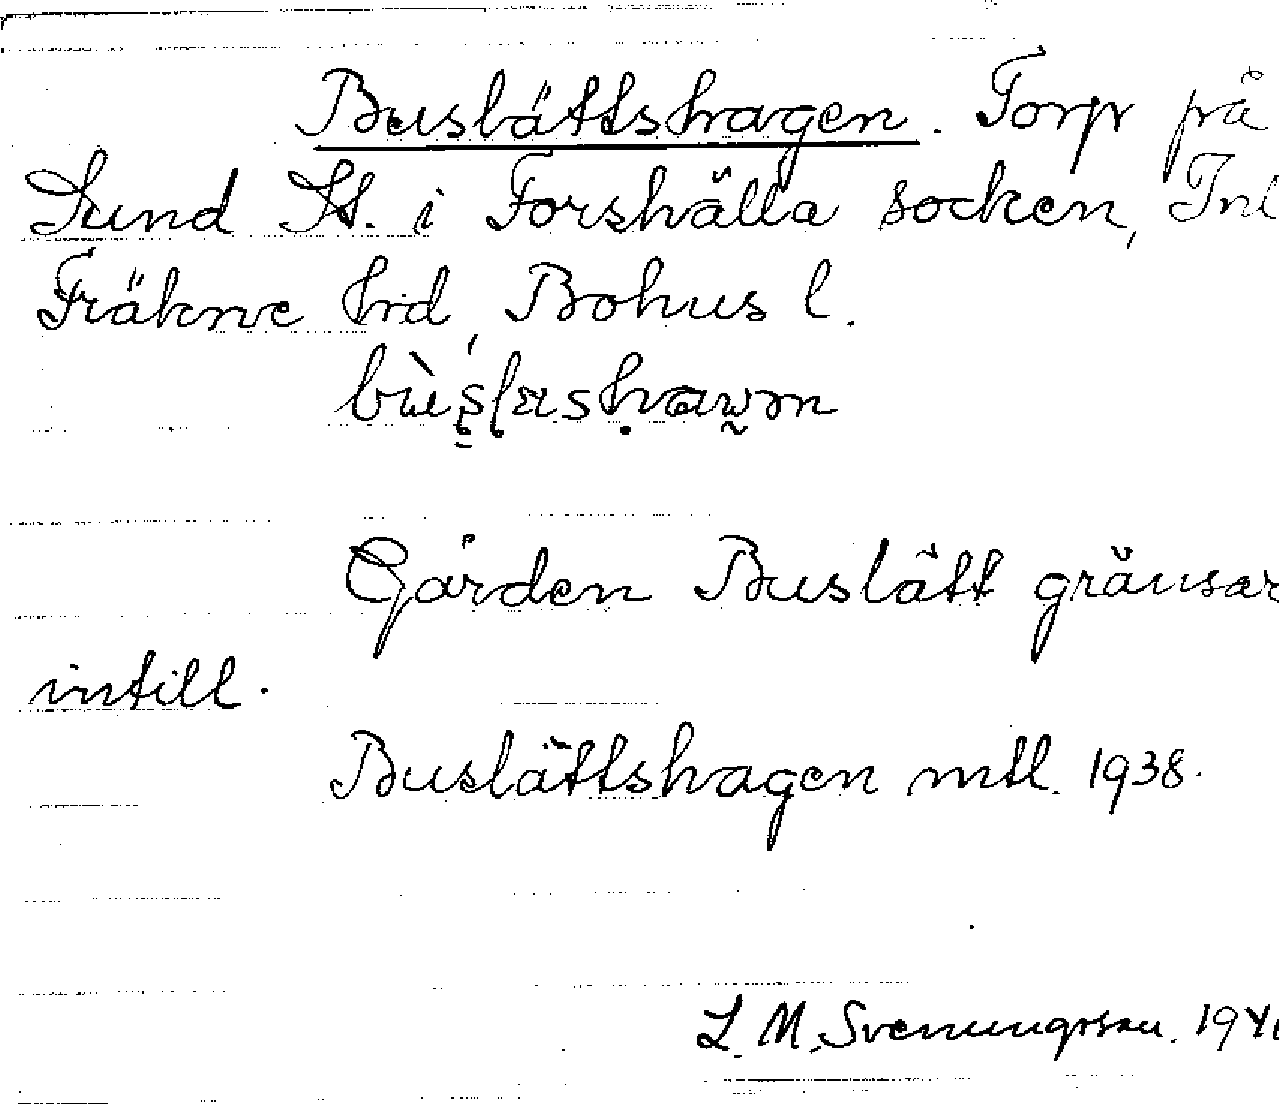 Buslättshagen. Torp på
Sund St. i Forshälla socken, Inl
Fräkne hrd, Bohus l.
Gården Buslätt gränsar
intill.
Buslättshagen mtl. 1938.
L. M. Svenungsson. 194